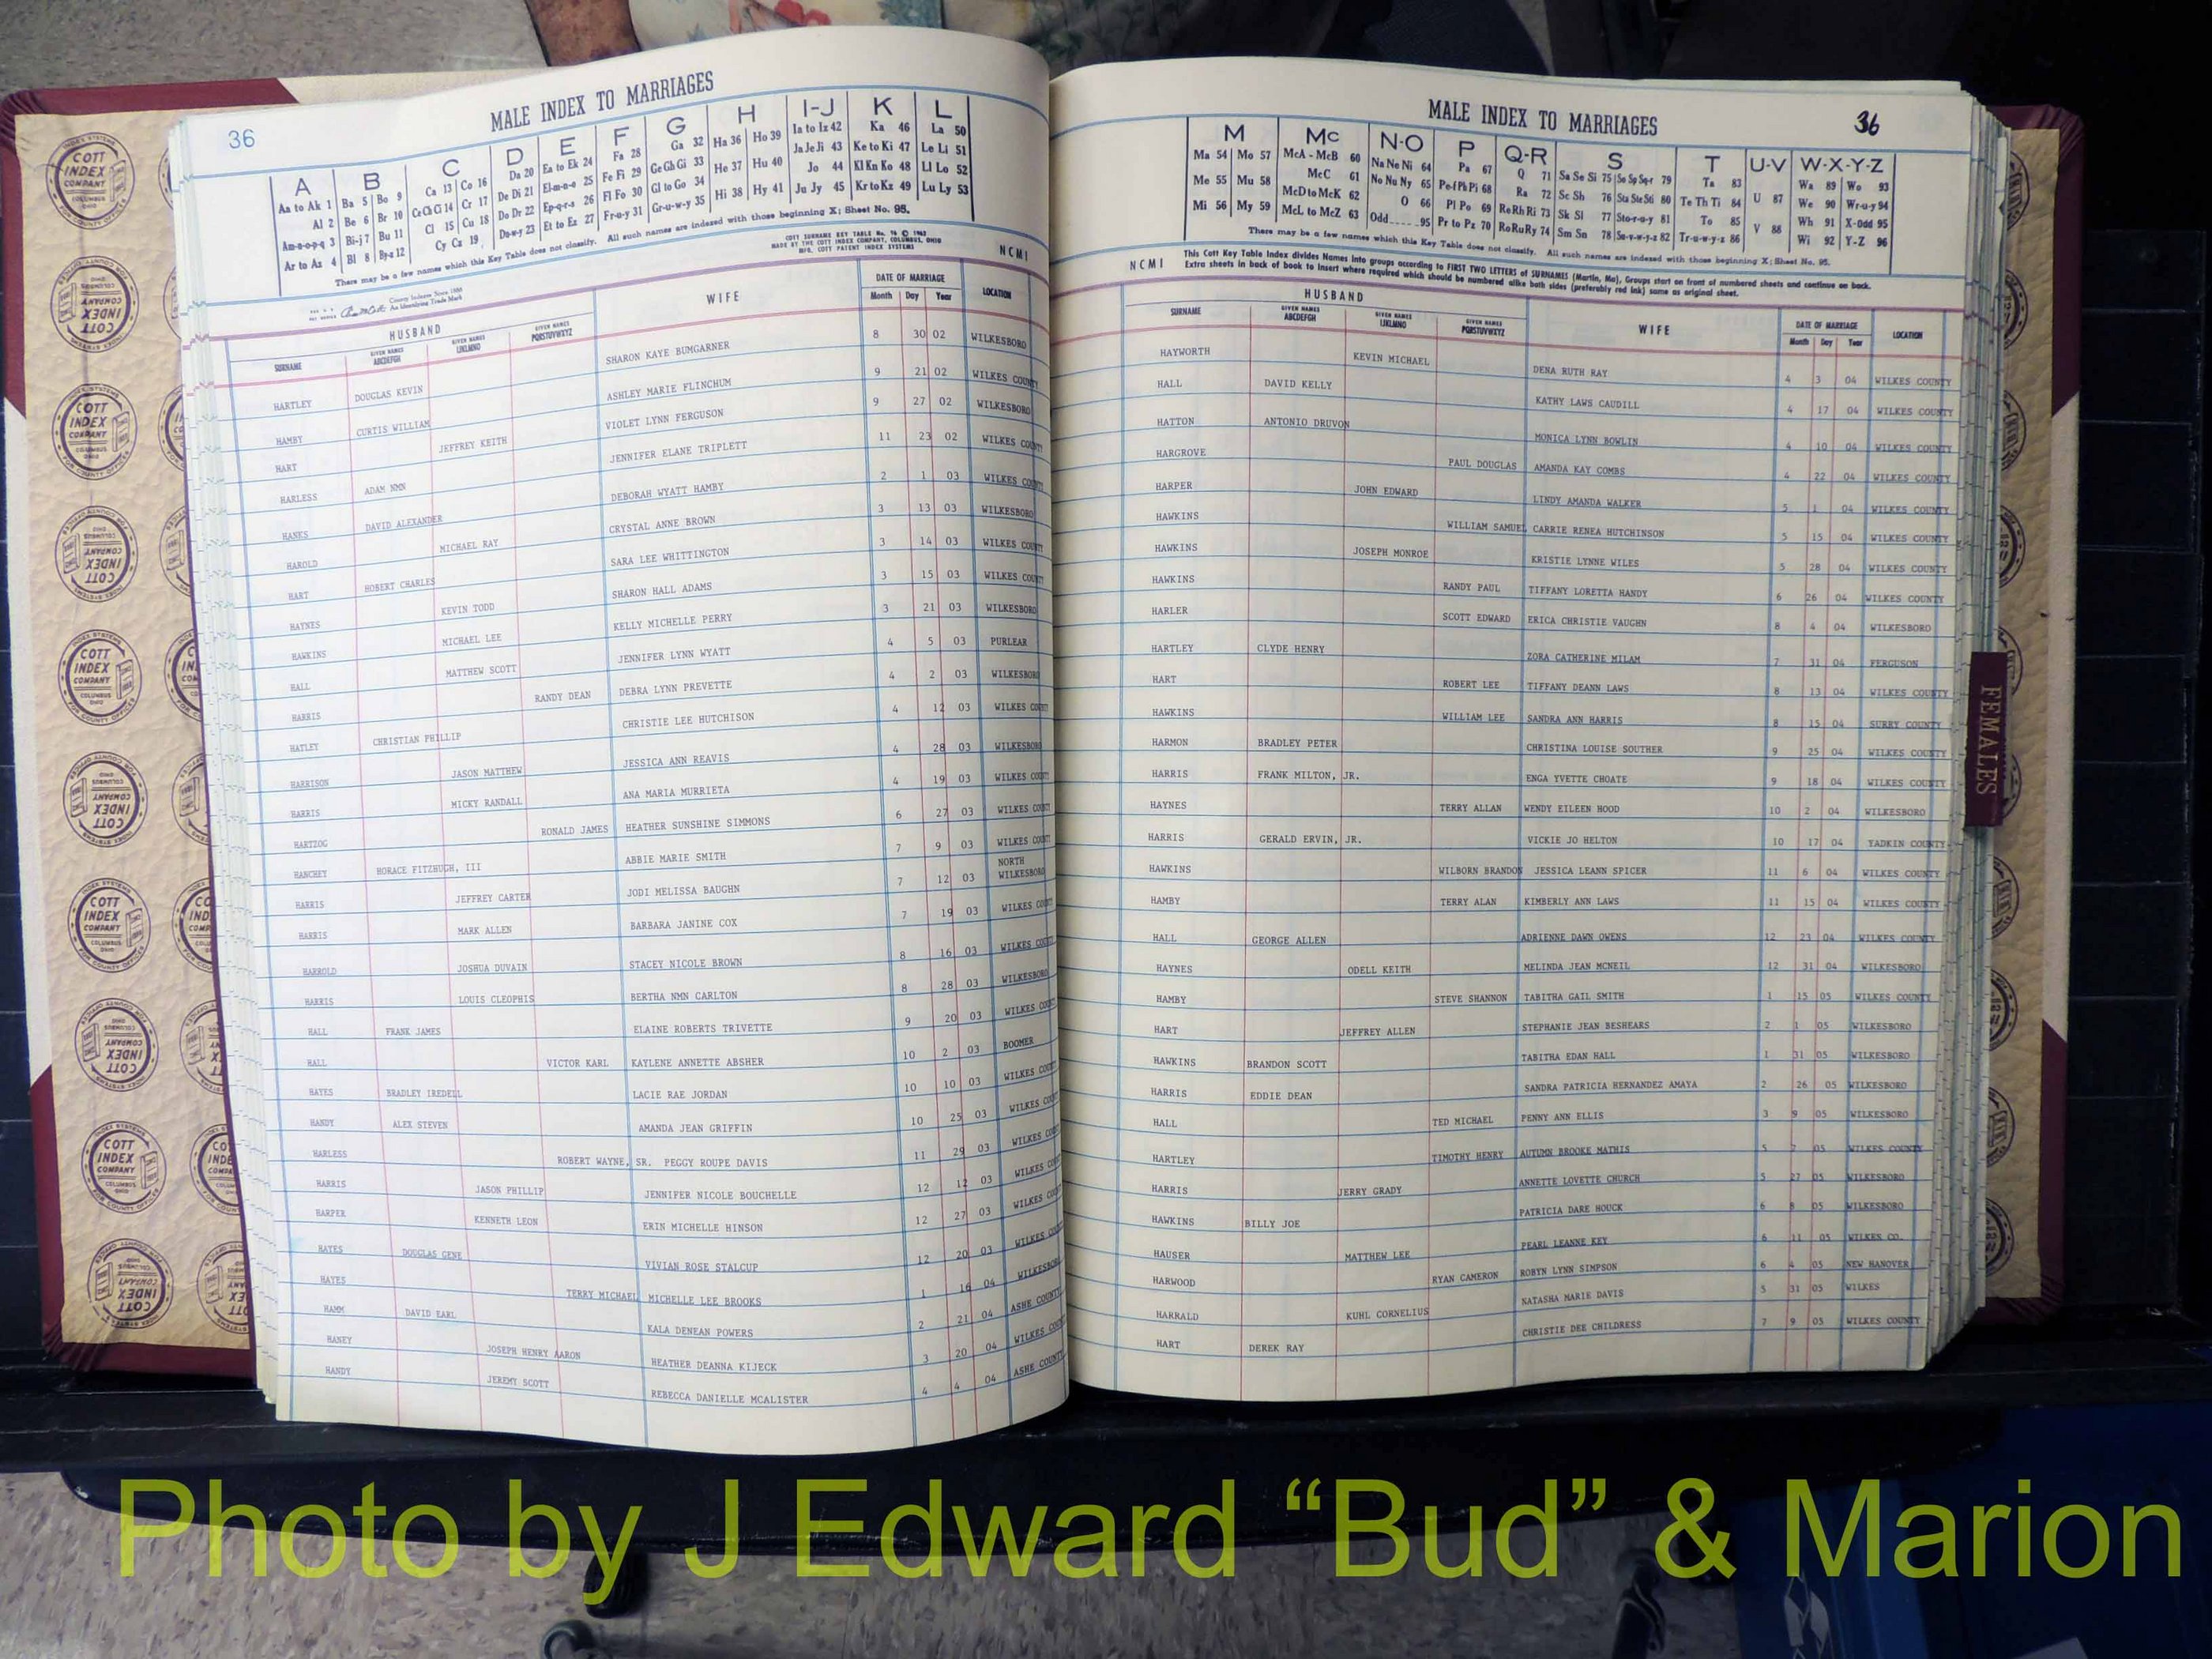 MALE INDEX TO MARRIAGES
36
A B C D E F G H I-J K L
Aa to Ak 1 Ba 5 Bo 9 Ca 13 Co 16 Da 20 Ea to Ek 24 Fa 28 Ga 32 Ha 36 Ho 39 Ia to Iz 42 Ka 46 La 50
Al 2 Be 6 Br 10 Ce Ch Ci 14 Cr 17 De Di 21 El-m-n-o 25 Fe Fi 29 Ge Gh Gi 33 He 37 Hu 40 Ja Je Ji 43 Ke to Ki 47 Le Li 51
Am-n-o-p-q 3 Bi-j 7 Bu 11 Cl 15 Cu 18 Do Dr 22 Ep-q-r-s 26 Fl Fo 30 Gl to Go 34 Hi 38 Hy 41 Jo 44 Kl Kn Ko 48 Ll Lo 52
Ar to Az 4 Bl 8 By-z 12 Cy Cz 19 Du-w-y 23 Et to Ez 27 Fr-u-y 31 Gr-u-w-y 35 Ju Jy 45 Kr to Kz 49 Lu Ly 53
There may be a few names which this Key Table does not classify. All such names are indexed with those beginning X; Sheet No. 95.
COTT SURNAME KEY TABLE No. 96 © 1963
MADE BY THE COTT INDEX COMPANY, COLUMBUS, OHIO
MFG. COTT PATENT INDEX SYSTEMS
NCMI
County Indexes Since 1888
An Identifying Trade Mark
HUSBAND WIFE DATE OF MARRIAGE LOCATION
SURNAME GIVEN NAMES ABCDEFGH GIVEN NAMES IJKLMNO GIVEN NAMES PQRSTUVWXYZ Month Day Year
HARTLEY DOUGLAS KEVIN SHARON KAYE BUMGARNER 8 30 02 WILKESBORO
HAMBY CURTIS WILLIAM ASHLEY MARIE FLINCHUM 9 21 02 WILKES COUNTY
HART JEFFREY KEITH VIOLET LYNN FERGUSON 9 27 02 WILKESBORO
HARLESS ADAM NMN JENNIFER ELANE TRIPLETT 11 23 02 WILKES COUNTY
HANKS DAVID ALEXANDER DEBORAH WYATT HAMBY 2 1 03 WILKES COUNTY
HAROLD MICHAEL RAY CRYSTAL ANNE BROWN 3 13 03 WILKESBORO
HART HOBERT CHARLES SARA LEE WHITTINGTON 3 14 03 WILKES COUNTY
HAYNES KEVIN TODD SHARON HALL ADAMS 3 15 03 WILKES COUNTY
HAWKINS MICHAEL LEE KELLY MICHELLE PERRY 3 21 03 WILKESBORO
HALL MATTHEW SCOTT JENNIFER LYNN WYATT 4 5 03 PURLEAR
HARRIS RANDY DEAN DEBRA LYNN PREVETTE 4 2 03 WILKESBORO
HATLEY CHRISTIAN PHILLIP CHRISTIE LEE HUTCHISON 4 12 03 WILKES COUNTY
HARRISON JASON MATTHEW JESSICA ANN REAVIS 4 28 03 WILKESBORO
HARRIS MICKY RANDALL ANA MARIA MURRIETA 4 19 03 WILKES COUNTY
HARTZOG RONALD JAMES HEATHER SUNSHINE SIMMONS 6 27 03 WILKES COUNTY
HANCHEY HORACE FITZHUGH, III ABBIE MARIE SMITH 7 9 03 WILKES COUNTY
HARRIS JEFFREY CARTER JODI MELISSA BAUGHN 7 12 03 NORTH WILKESBORO
HARRIS MARK ALLEN BARBARA JANINE COX 7 19 03 WILKES COUNTY
HARROLD JOSHUA DUVAIN STACEY NICOLE BROWN 8 16 03 WILKES COUNTY
HARRIS LOUIS CLEOPHIS BERTHA NMN CARLTON 8 28 03 WILKESBORO
HALL FRANK JAMES ELAINE ROBERTS TRIVETTE 9 20 03 WILKES COUNTY
HALL VICTOR KARL KAYLENE ANNETTE ABSHER 10 2 03 BOOMER
HAYES BRADLEY IREDELL LACIE RAE JORDAN 10 10 03 WILKES COUNTY
HANDY ALEX STEVEN AMANDA JEAN GRIFFIN 10 25 03 WILKES COUNTY
HARLESS ROBERT WAYNE, SR. PEGGY ROUPE DAVIS 11 29 03 WILKES COUNTY
HARRIS JASON PHILLIP JENNIFER NICOLE BOUCHELLE 12 12 03 WILKES COUNTY
HARPER KENNETH LEON ERIN MICHELLE HINSON 12 27 03 WILKES COUNTY
HAYES DOUGLAS GENE VIVIAN ROSE STALCUP 12 20 03 WILKES COUNTY
HAYES TERRY MICHAEL MICHELLE LEE BROOKS 1 16 04 WILKESBORO
HAMM DAVID EARL KALA DENEAN POWERS 2 21 04 ASHE COUNTY
HANEY JOSEPH HENRY AARON HEATHER DEANNA KIJECK 3 20 04 WILKES COUNTY
HANDY JEREMY SCOTT REBECCA DANIELLE MCALISTER 4 4 04 ASHE COUNTY
MALE INDEX TO MARRIAGES
36
M Mc N-O P Q-R S T U-V W-X-Y-Z
Ma 54 Mo 57 McA - McB 60 Na Ne Ni 64 Pa 67 Q 71 Sa Se Si 75 So Sp Sq-r 79 Ta 83 U 87 Wa 89 Wo 93
Me 55 Mu 58 McC 61 No Nu Ny 65 Pe-f Ph Pi 68 Ra 72 Sc Sh 76 Sta Ste Sti 80 Te Th Ti 84 We 90 Wr-u-y 94
Mi 56 My 59 McD to McK 62 O 66 Pl Po 69 Re Rh Ri 73 Sk Sl 77 Sto-r-u-y 81 To 85 V 88 Wh 91 X-Odd 95
McL to McZ 63 Odd 95 Pr to Pz 70 Ro Ru Ry 74 Sm Sn 78 Su-v-w-y-z 82 Tr-u-w-y-z 86 Wi 92 Y-Z 96
There may be a few names which this Key Table does not classify. All such names are indexed with those beginning X; Sheet No. 95.
NCMI
This Cott Key Table Index divides Names into groups according to FIRST TWO LETTERS of SURNAMES (Martin, Ma), Groups start on front of numbered sheets and continue on back.
Extra sheets in back of book to insert where required which should be numbered alike both sides (preferably red ink) same as original sheet.
HUSBAND WIFE DATE OF MARRIAGE LOCATION
SURNAME GIVEN NAMES ABCDEFGH GIVEN NAMES IJKLMNO GIVEN NAMES PQRSTUVWXYZ Month Day Year
HAYWORTH KEVIN MICHAEL DENA RUTH RAY 4 3 04 WILKES COUNTY
HALL DAVID KELLY KATHY LAWS CAUDILL 4 17 04 WILKES COUNTY
HATTON ANTONIO DRUVON MONICA LYNN BOWLIN 4 10 04 WILKES COUNTY
HARGROVE PAUL DOUGLAS AMANDA KAY COMBS 4 22 04 WILKES COUNTY
HARPER JOHN EDWARD LINDY AMANDA WALKER 5 1 04 WILKES COUNTY
HAWKINS WILLIAM SAMUEL CARRIE RENEA HUTCHINSON 5 15 04 WILKES COUNTY
HAWKINS JOSEPH MONROE KRISTIE LYNNE WILES 5 28 04 WILKES COUNTY
HAWKINS RANDY PAUL TIFFANY LORETTA HANDY 6 26 04 WILKES COUNTY
HARLER SCOTT EDWARD ERICA CHRISTIE VAUGHN 8 4 04 WILKESBORO
HARTLEY CLYDE HENRY ZORA CATHERINE MILAM 7 31 04 FERGUSON
HART ROBERT LEE TIFFANY DEANN LAWS 8 13 04 WILKES COUNTY
HAWKINS WILLIAM LEE SANDRA ANN HARRIS 8 15 04 SURRY COUNTY
HARMON BRADLEY PETER CHRISTINA LOUISE SOUTHER 9 25 04 WILKES COUNTY
HARRIS FRANK MILTON, JR. ENGA YVETTE CHOATE 9 18 04 WILKES COUNTY
HAYNES TERRY ALLAN WENDY EILEEN HOOD 10 2 04 WILKESBORO
HARRIS GERALD ERVIN, JR. VICKIE JO HELTON 10 17 04 YADKIN COUNTY
HAWKINS WILBORN BRANDON JESSICA LEANN SPICER 11 6 04 WILKES COUNTY
HAMBY TERRY ALAN KIMBERLY ANN LAWS 11 15 04 WILKES COUNTY
HALL GEORGE ALLEN ADRIENNE DAWN OWENS 12 23 04 WILKES COUNTY
HAYNES ODELL KEITH MELINDA JEAN MCNEIL 12 31 04 WILKESBORO
HAMBY STEVE SHANNON TABITHA GAIL SMITH 1 15 05 WILKES COUNTY
HART JEFFREY ALLEN STEPHANIE JEAN BESHEARS 2 1 05 WILKESBORO
HAWKINS BRANDON SCOTT TABITHA EDAN HALL 1 31 05 WILKESBORO
HARRIS EDDIE DEAN SANDRA PATRICIA HERNANDEZ AMAYA 2 26 05 WILKESBORO
HALL TED MICHAEL PENNY ANN ELLIS 3 9 05 WILKESBORO
HARTLEY TIMOTHY HENRY AUTUMN BROOKE MATHIS 5 7 05 WILKES COUNTY
HARRIS JERRY GRADY ANNETTE LOVETTE CHURCH 5 27 05 WILKESBORO
HAWKINS BILLY JOE PATRICIA DARE HOUCK 6 8 05 WILKESBORO
HAUSER MATTHEW LEE PEARL LEANNE KEY 6 11 05 WILKES CO.
HARWOOD RYAN CAMERON ROBYN LYNN SIMPSON 6 4 05 NEW HANOVER
HARRALD KUHL CORNELIUS NATASHA MARIE DAVIS 5 31 05 WILKES
HART DEREK RAY CHRISTIE DEE CHILDRESS 7 9 05 WILKES COUNTY
FEMALES
COTT INDEX COMPANY
COLUMBUS OHIO
INDEX SYSTEMS
FOR COUNTY OFFICES
Photo by J Edward “Bud” & Marion